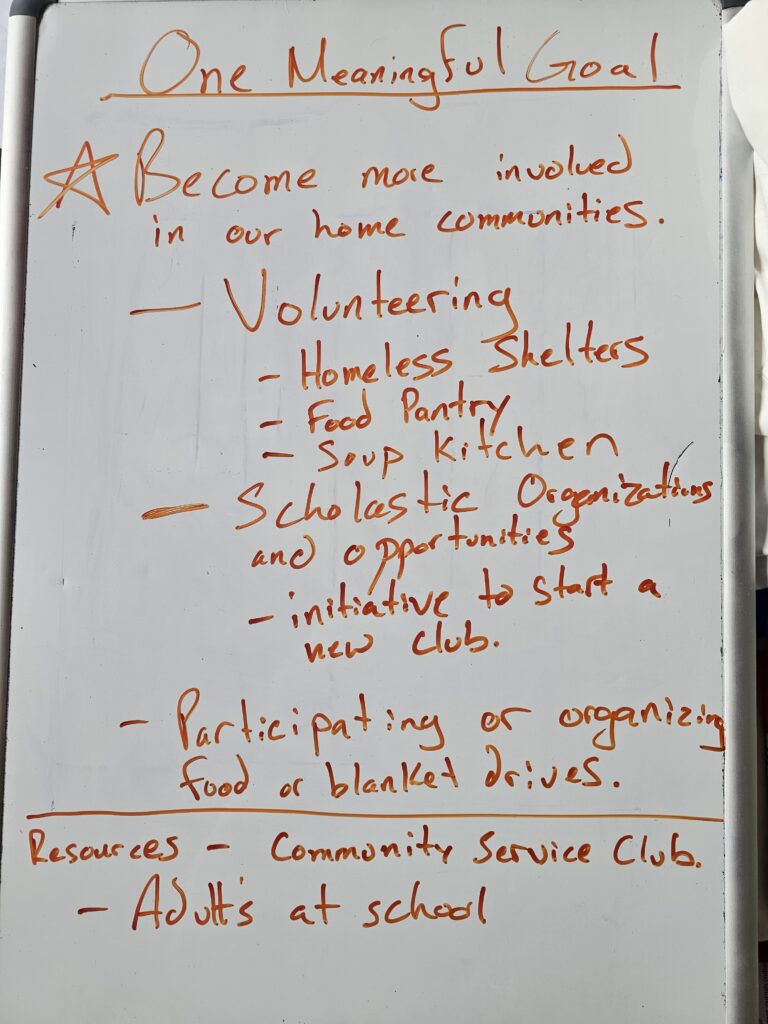 One Meaningful Goal
☆ Become more involved
in our home communities.
— Volunteering
- Homeless Shelters
- Food Pantry
- Soup Kitchen
— Scholastic Organizations
and opportunities
- initiative to start a
new club.
- Participating or organizing
food or blanket drives.
Resources - Community Service Club.
- Adult's at school